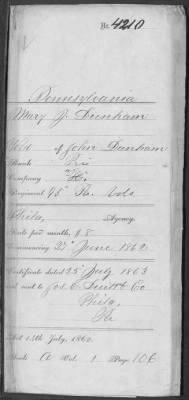 Br. 4210
Pennsylvania
Mary J. Dunham
Wid of John Dunham
Rank Pri
Company "H"
Regiment 95" Pa. Vols
Phila, Agency.
Rate per month, $8
Commencing 27" June 1862
Certificate dated 25" July 1863
and sent to Jos. E. & Co
Phila,
Pa
Act 14th July, 1862.
Book A Vol. 1 Page 106